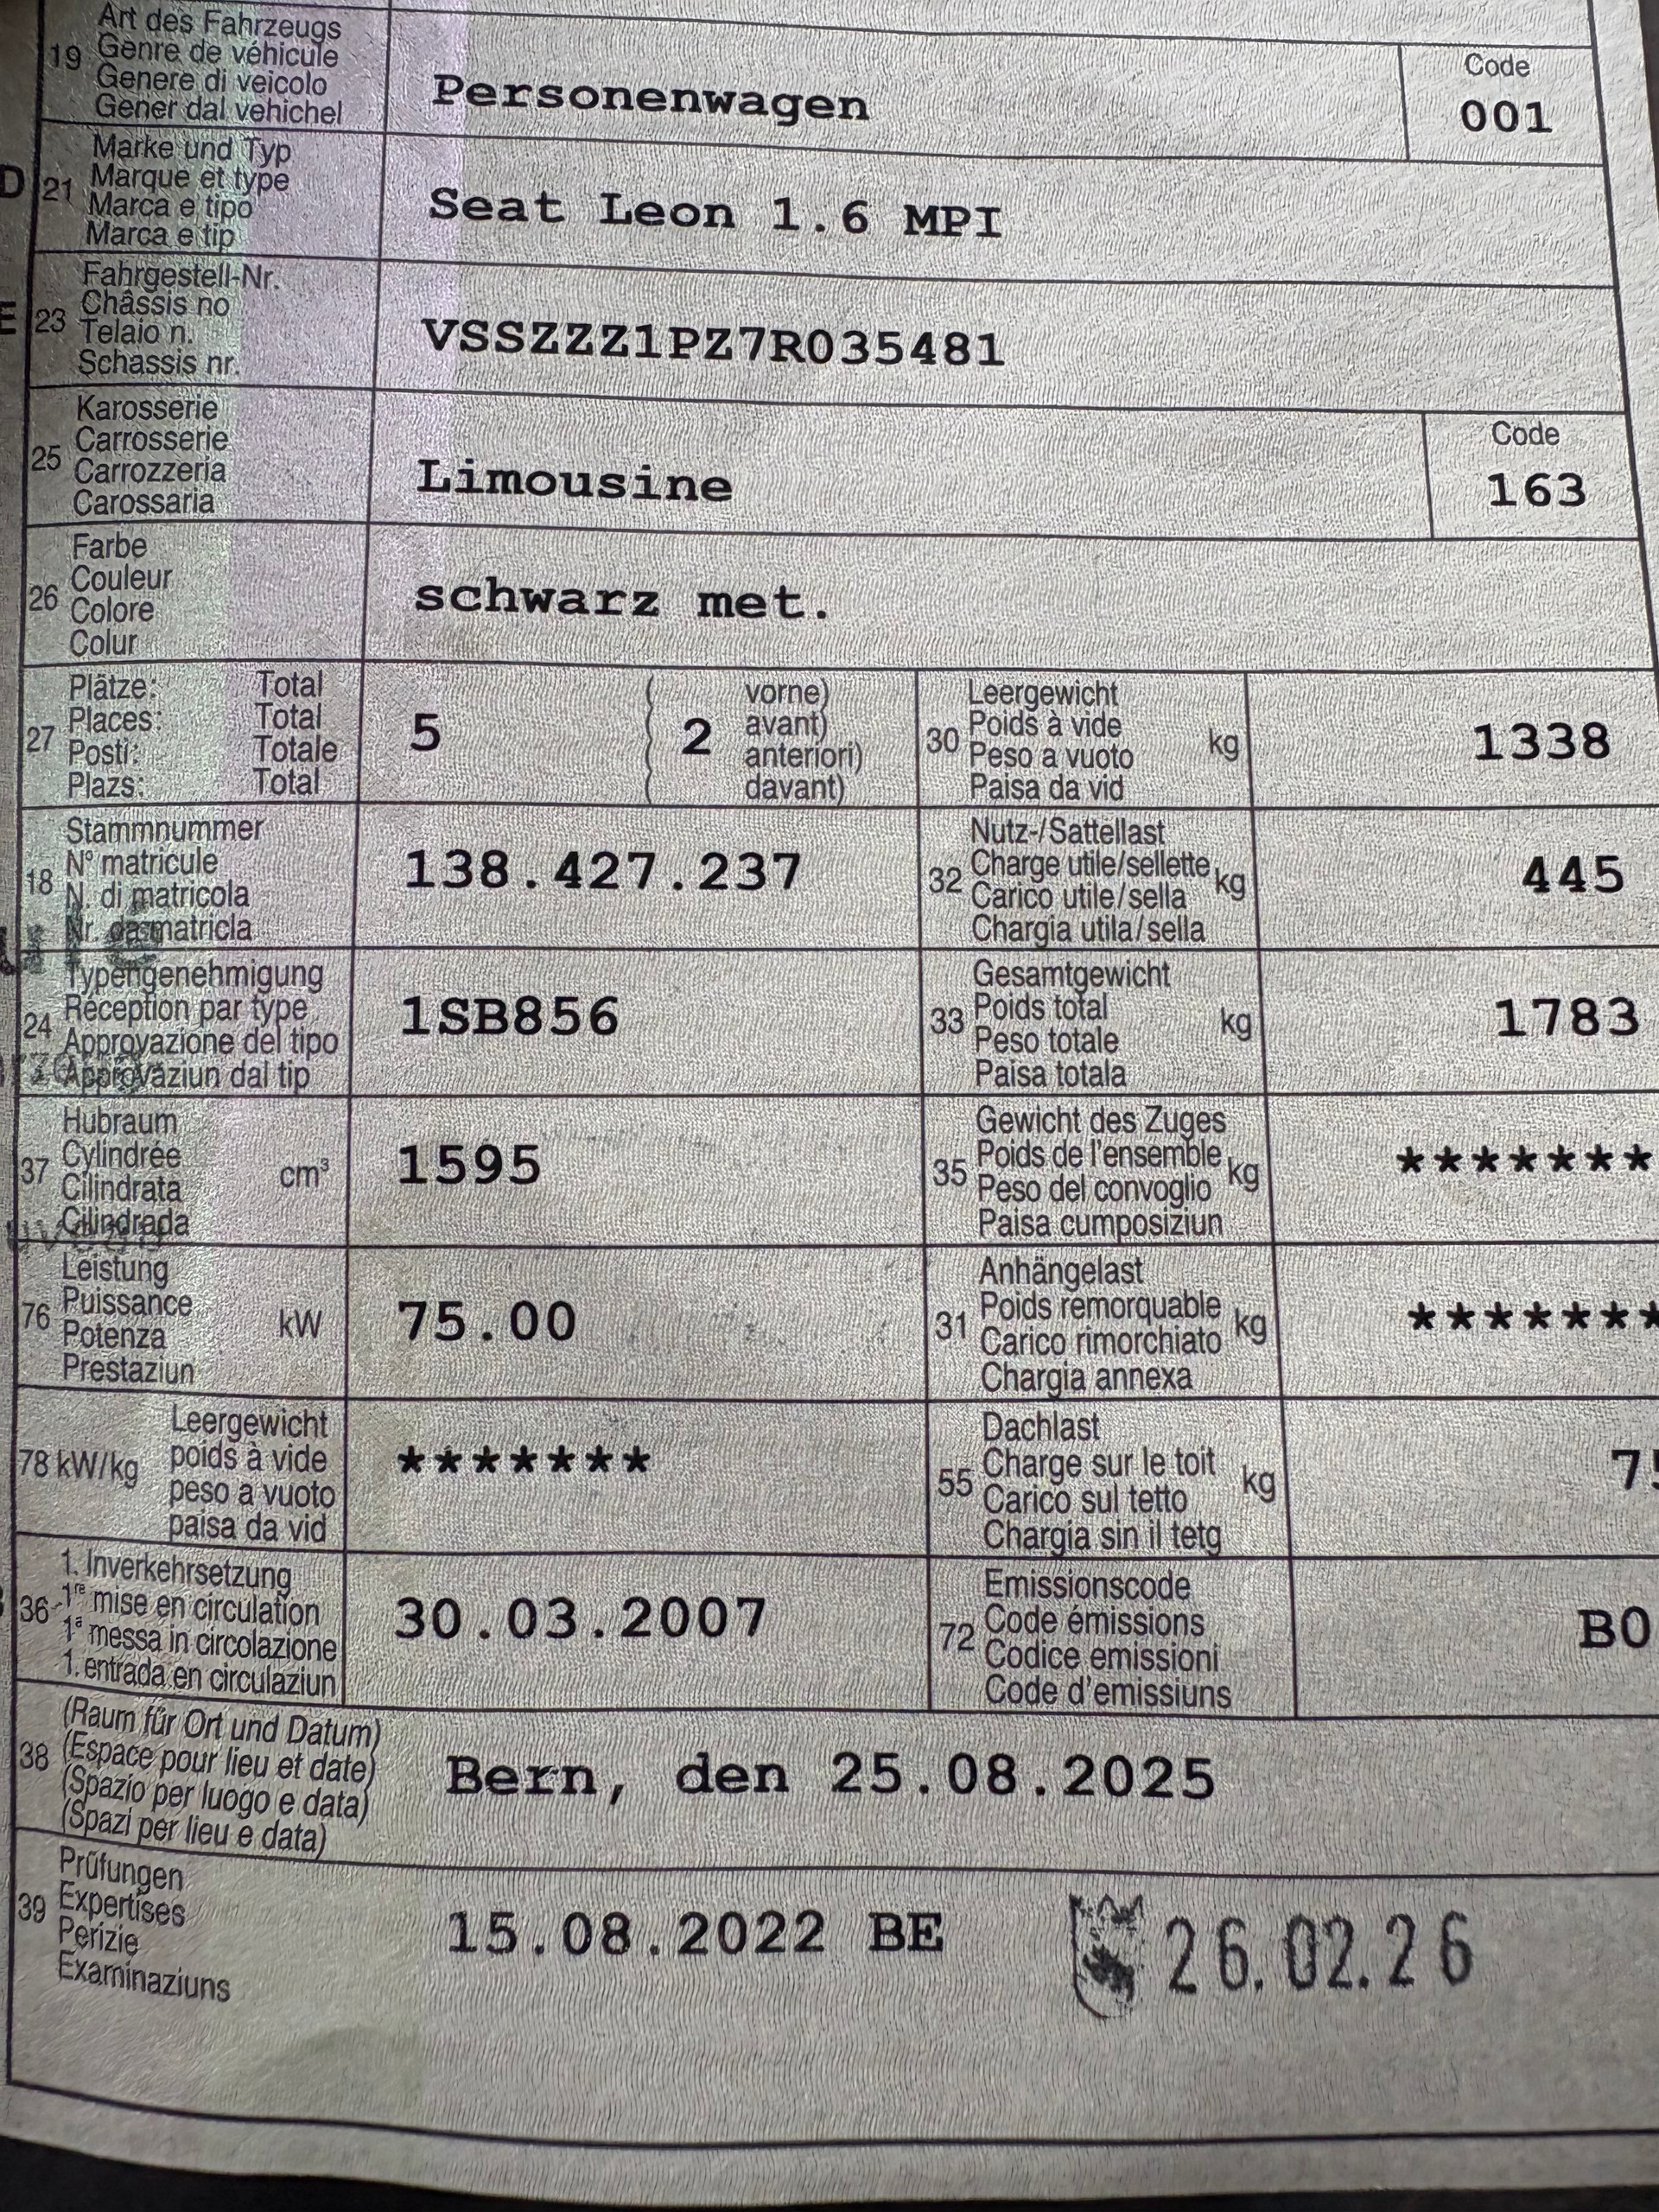 Art des Fahrzeugs
19 Genre de véhicule
Genere di veicolo
Gener dal vehichel
Personenwagen
Code
001
Marke und Typ
D 21 Marque et type
Marca e tipo
Marca e tip
Seat Leon 1.6 MPI
Fahrgestell-Nr.
E 23 Châssis no
Telaio n.
Schassis nr.
VSSZZZ1PZ7R035481
Karosserie
25 Carrosserie
Carrozzeria
Carossaria
Limousine
Code
163
Farbe
26 Couleur
Colore
Colur
schwarz met.
Plätze: Total
27 Places: Total
Posti: Totale
Plazs: Total
5
( 2
vorne)
avant)
anteriori)
davant)
Leergewicht
30 Poids à vide kg
Peso a vuoto
Paisa da vid
1338
Stammnummer
18 N° matricule
N. di matricola
Nr. da matricla
138.427.237
Nutz-/Sattellast
32 Charge utile/sellette kg
Carico utile/sella
Chargia utila/sella
445
Typengenehmigung
24 Réception par type
Approvazione del tipo
Approvaziun dal tip
1SB856
Gesamtgewicht
33 Poids total kg
Peso totale
Paisa totala
1783
Hubraum
37 Cylindrée cm³
Cilindrata
Cilindrada
1595
Gewicht des Zuges
35 Poids de l'ensemble kg
Peso del convoglio
Paisa cumposiziun
*******
Leistung
76 Puissance kW
Potenza
Prestaziun
75.00
Anhängelast
31 Poids remorquable kg
Carico rimorchiato
Chargia annexa
*******
Leergewicht
78 kW/kg poids à vide
peso a vuoto
paisa da vid
*******
Dachlast
55 Charge sur le toit kg
Carico sul tetto
Chargia sin il tetg
75
1. Inverkehrsetzung
36 1re mise en circulation
1a messa in circolazione
1. entrada en circulaziun
30.03.2007
Emissionscode
72 Code émissions
Codice emissioni
Code d'emissiuns
B0
(Raum für Ort und Datum)
38 (Espace pour lieu et date)
(Spazio per luogo e data)
(Spazi per lieu e data)
Bern, den 25.08.2025
Prüfungen
39 Expertises
Perizie
Examinaziuns
15.08.2022 BE
26.02.26